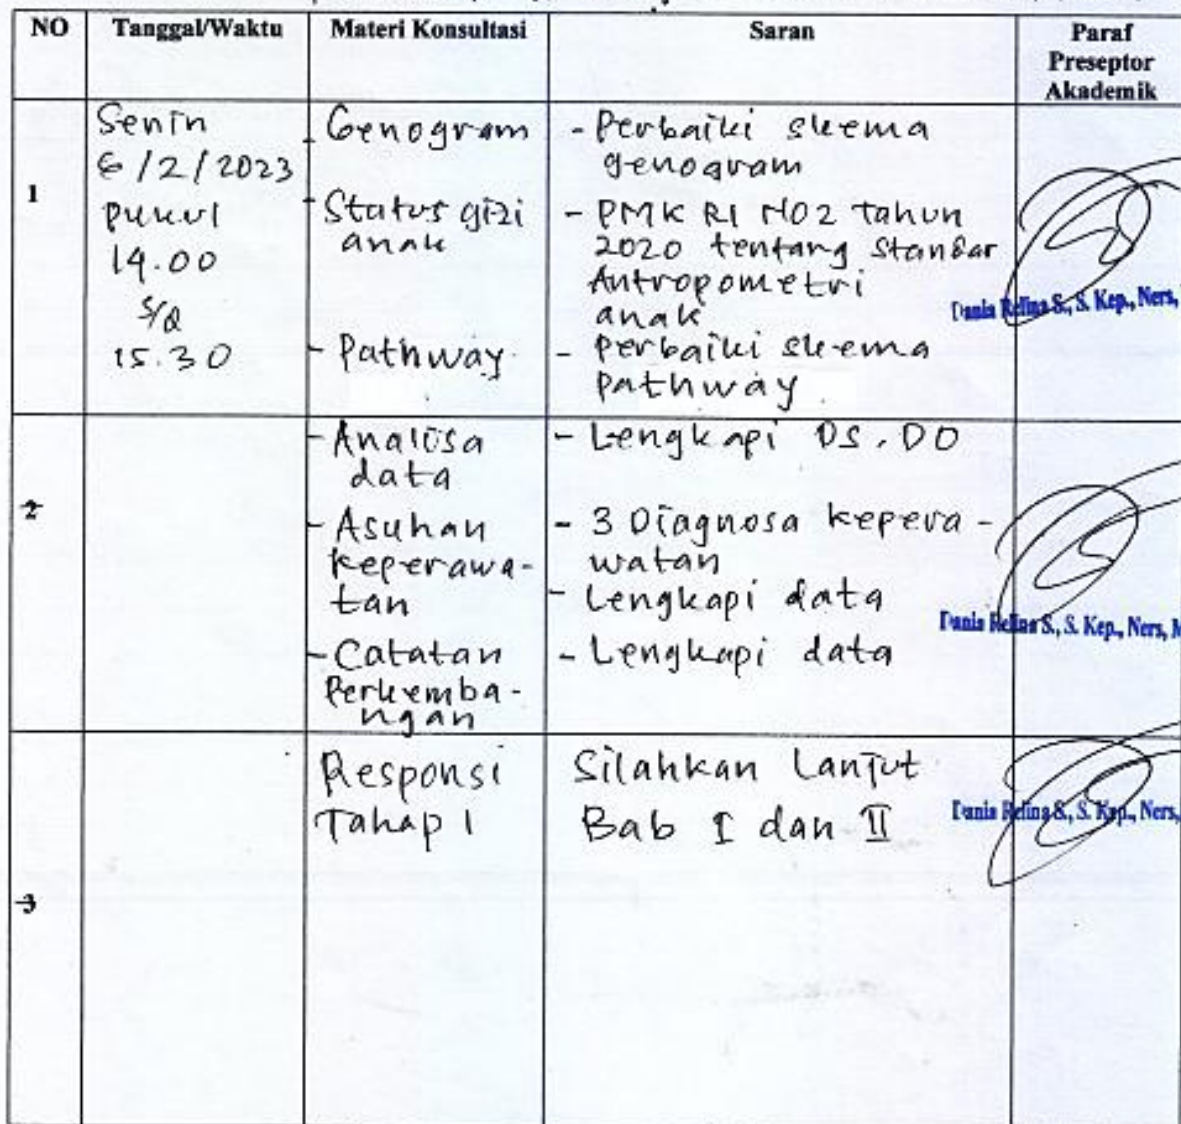 NO Tanggal/Waktu Materi Konsultasi Saran Paraf
Preseptor
Akademik
1
Senin
6/2/2023
pukul
14.00
s/d
15.30
- Genogram
- Status gizi
anak
- Pathway
- Perbaiki skema
genogram
- PMK RI NO2 tahun
2020 tentang Standar
Antropometri
anak
- perbaiki skema
pathway
Dania Relina S., S. Kep., Ners,
2
- Analisa
data
- Asuhan
keperawa-
tan
- Catatan
Perkemba-
ngan
- Lengkapi DS. DO
- 3 Diagnosa kepera-
watan
- Lengkapi data
- Lengkapi data
Dania Relina S., S. Kep., Ners, M
3
Responsi
Tahap 1
Silahkan Lanjut
Bab I dan II
Dania Relina S., S. Kep., Ners,